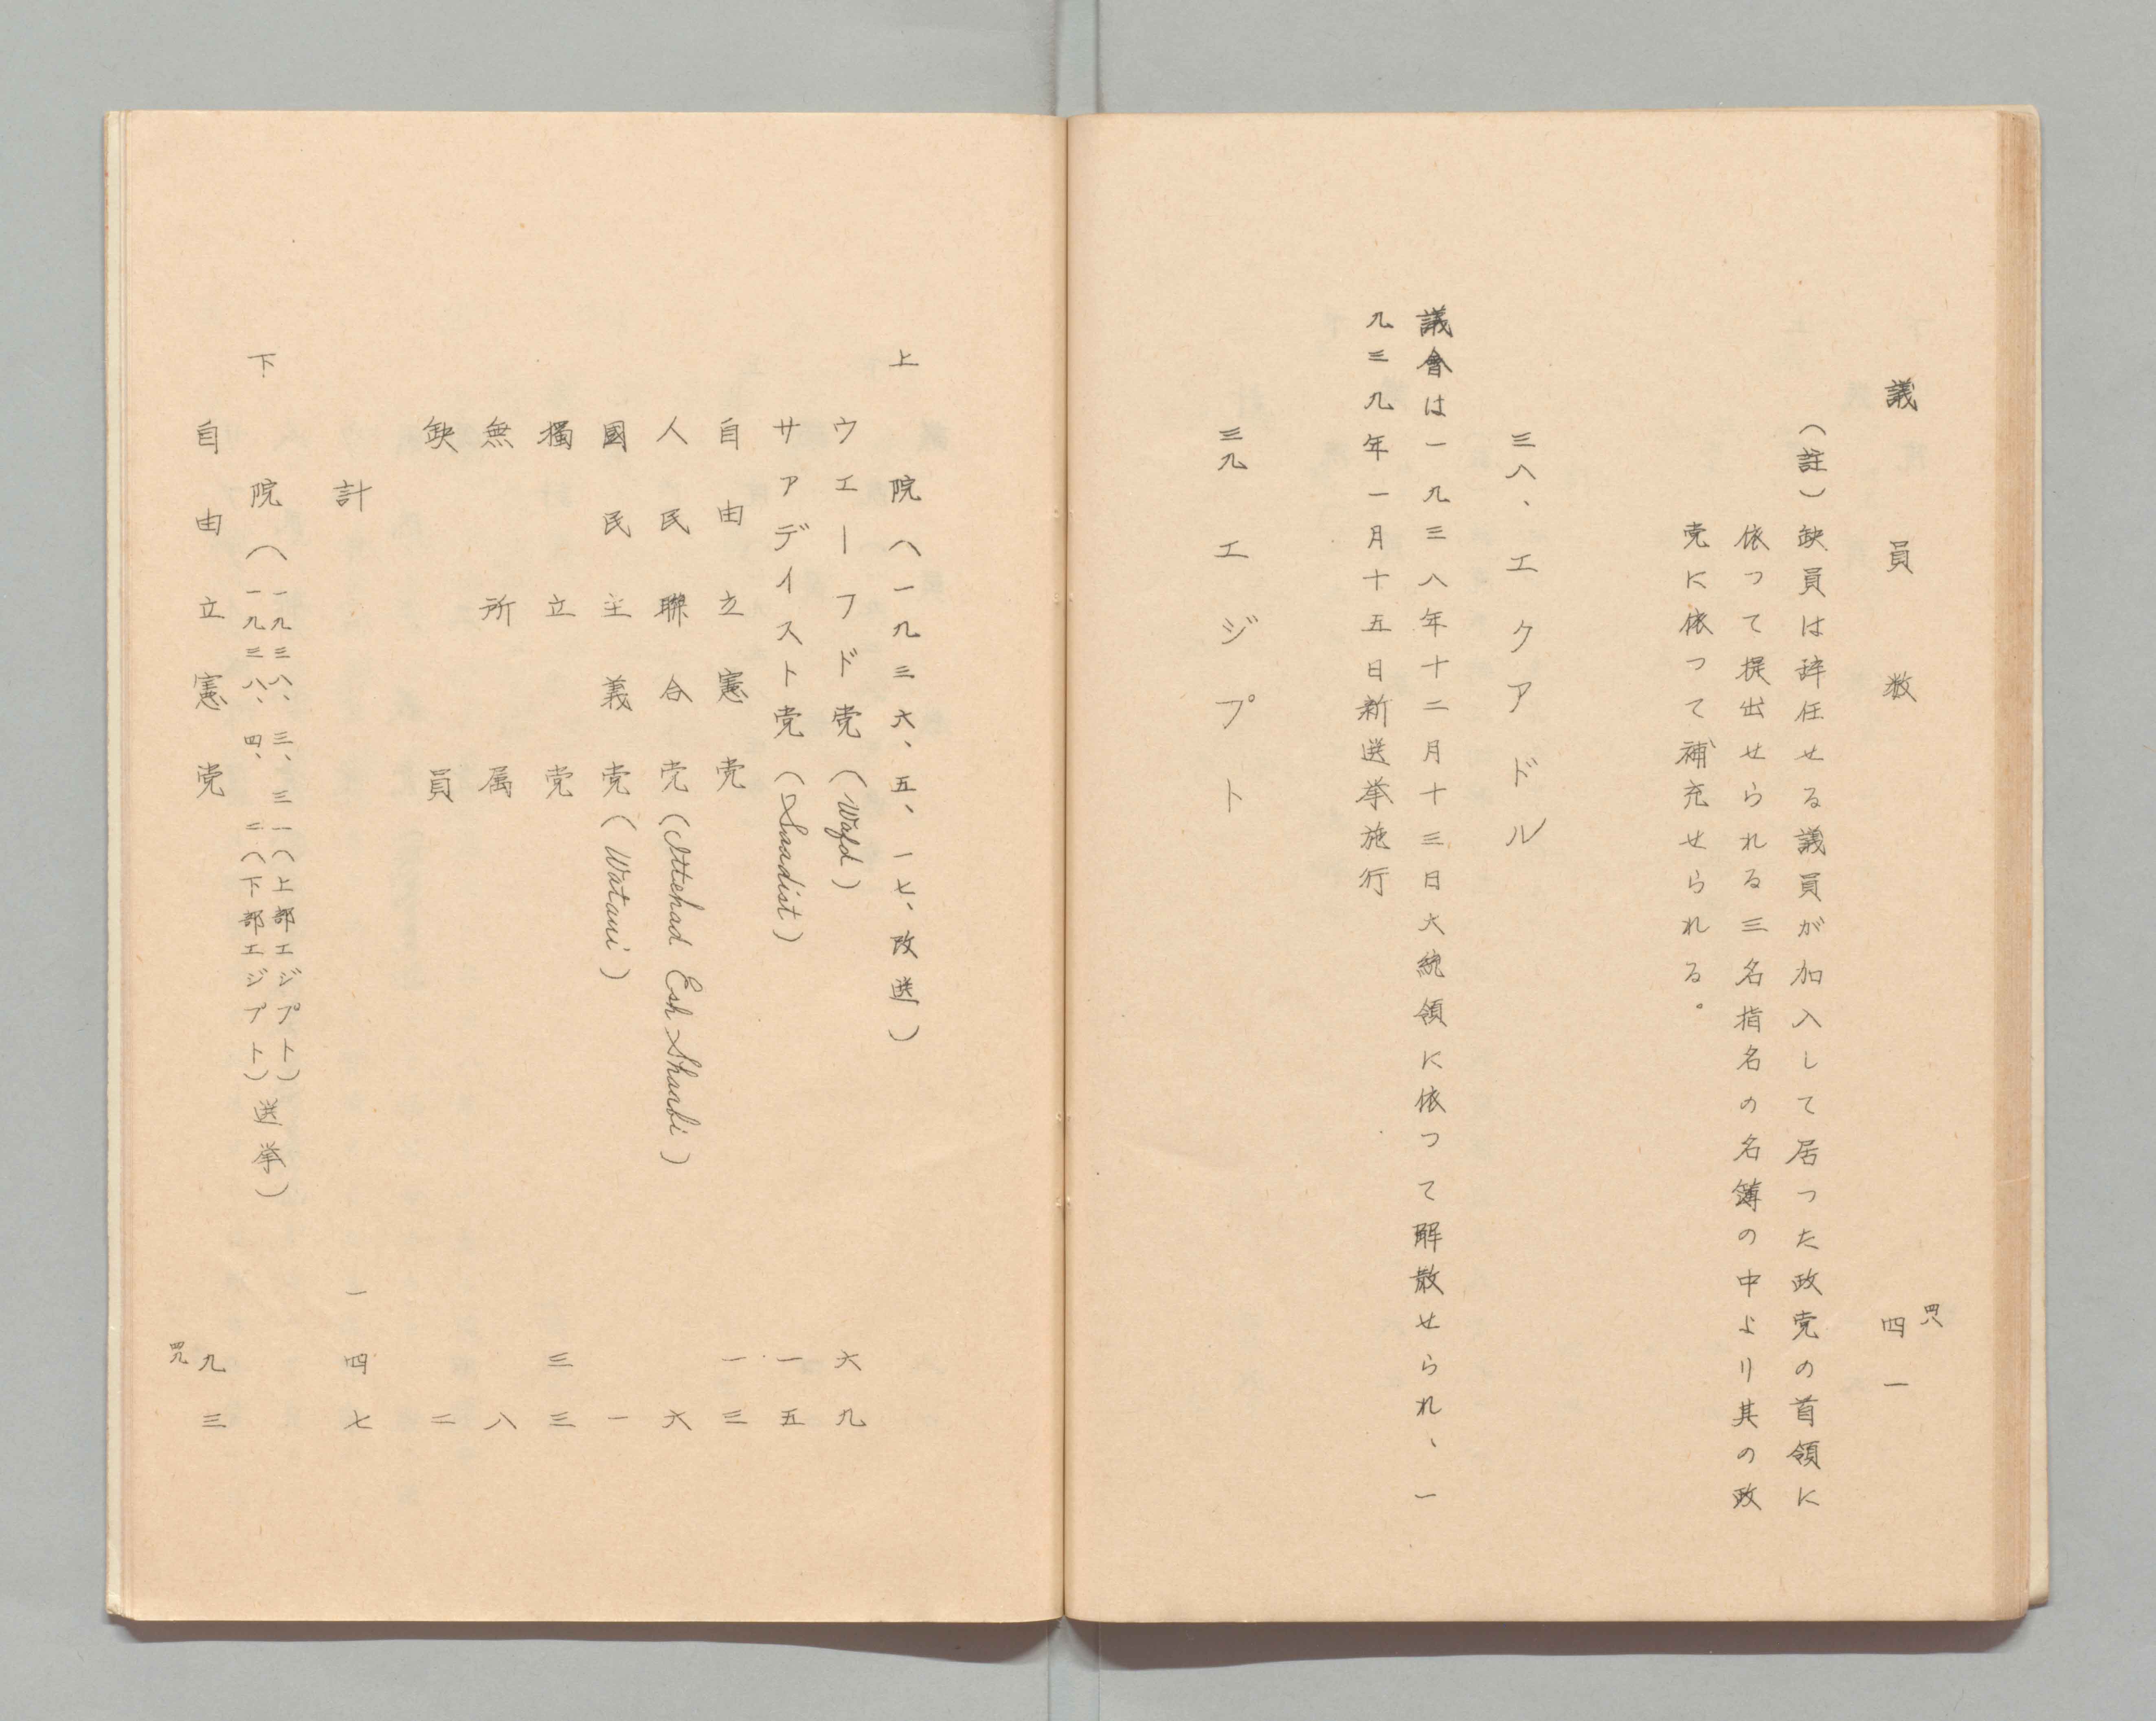 四八
議員数 四一
(註)缺員は辞任せる議員が加入して居った政党の首領に
依って提出せられる三名指名の名簿の中より其の政
党に依って補充せられる。
三八、エクアドル
議會は一九三八年十二月十三日大統領に依って解散せられ、一
九三九年一月十五日新選挙施行
三九 エジプト
上院(一九三六、五、一七、改選)
ウエーフド党(Wafd) 六九
サアデイスト党(Saadist) 一五
自由立憲党 一三
人民聯合党(Ittehad Esh Shaabi) 六
國民主義党(Watani) 一
獨立党 三三
無所属 八
缺員 二
計 一四七
下院(一九三八、三、三一(上部エジプト)
一九三八、四、二(下部エジプト)選挙)
自由立憲党 九三
四九